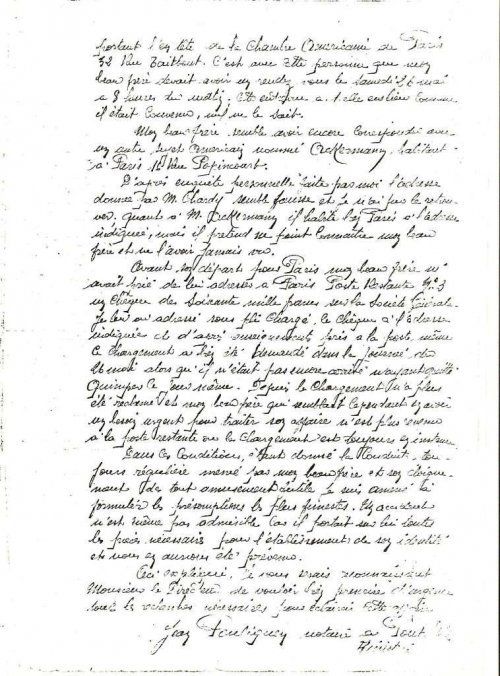 portant l'en tête de la Chambre Américaine de Paris
32 Rue Taitbout. C'est avec cette personne que mon
beau frère devait avoir un rendez vous le samedi 26 mai
a 9 heures du matin. Cette entrevue a-t-elle eu lieu comme
il était convenu, nul ne le sait.
Mon beau frère semble avoir encore correspondu avec
un autre sujet Américain nommé Ackermann, habitant
a Paris 16 Rue Popincourt.
D'après enquête personnelle faite par moi l'adresse
donnée par M. Chardy semble fausse et je n'ai pu le retrou-
ver. quant à M. Ackermann il habite bien Paris a l'adresse
indiquée, mais il prétend ne point connaître mon beau
frère et ne l'avoir jamais vu.
Avant son départ pour Paris mon beau frère m'
avait prié de lui adresser a Paris Poste Restante N° 3
un chèque de Soixante mille francs sur la Société Générale
Je lui ai adressé sous pli chargé le chèque a l'adresse
indiquée et d'après renseignements pris a la poste même
le chargement a bien été demandé dans la journée du
mai alors qu'il n'était pas encore arrivé n'ayant quitté
Quimper le même. Depuis le chargement n'a plus
été réclamé et mon beau frère qui semblait cependant en avoir
un besoin urgent pour traiter son affaire n'est plus revenu
a la poste restante ou le chargement est toujours en instance
Dans ces conditions, étant donné la conduite tou-
jours régulière menée par mon beau frère et son éloigne-
ment de tout amusement inutile je suis amené à
formuler les présomptions les plus funestes. Un accident
n'est même pas admissible car il portait sur lui toutes
les pièces nécessaires pour l'établissement de son identité
et nous en aurions été prévenus.
Ceci expliqué, je vous serais reconnaissant
Monsieur le Directeur de vouloir bien prescrire d'urgence
toutes les recherches nécessaires pour éclaircir cette affaire
Jean Pouliquen notaire a Pont
Finist